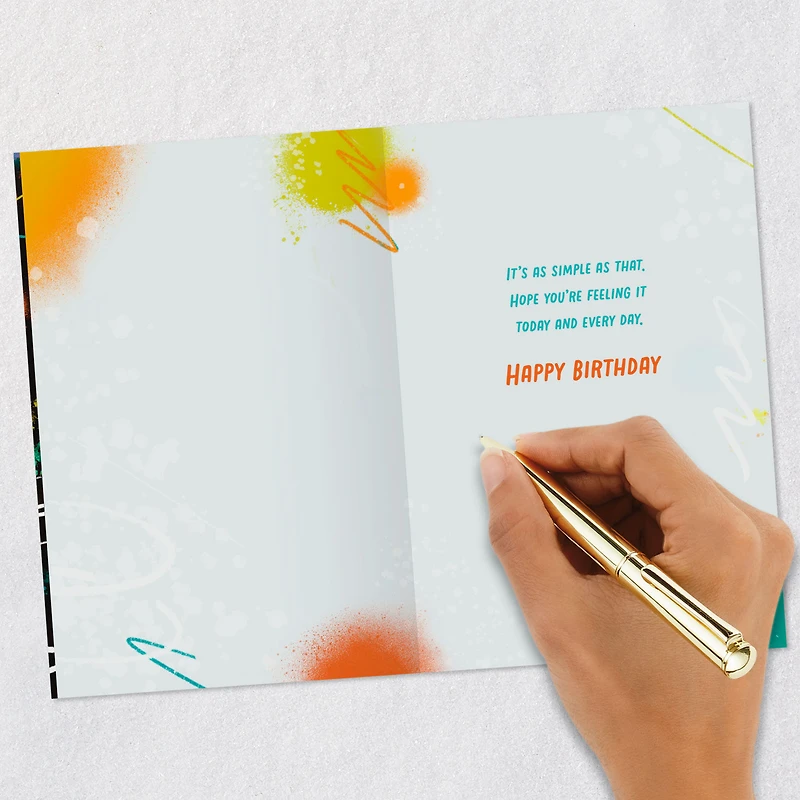 IT'S AS SIMPLE AS THAT.
HOPE YOU'RE FEELING IT
TODAY AND EVERY DAY.
HAPPY BIRTHDAY